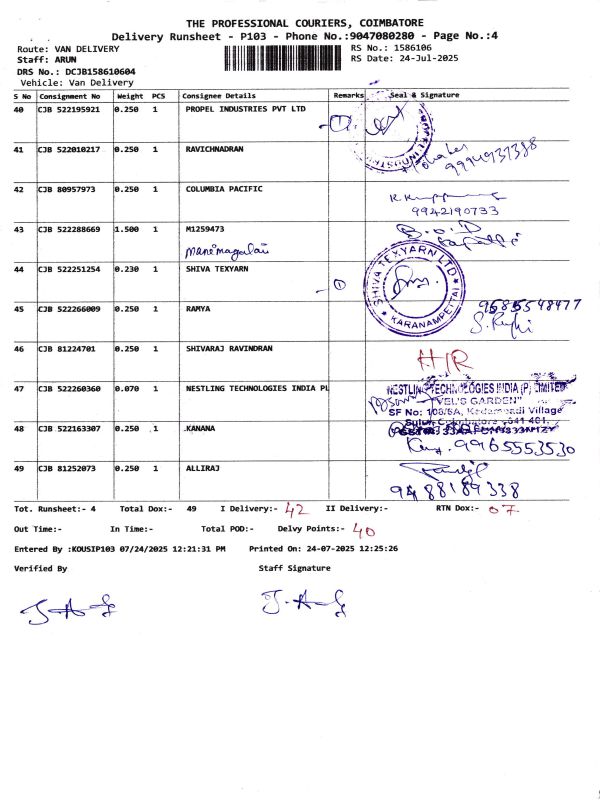 THE PROFESSIONAL COURIERS, COIMBATORE
Delivery Runsheet - P103 - Phone No.:9047080280 - Page No.:4
Route: VAN DELIVERY RS No.: 1586106
Staff: ARUN RS Date: 24-Jul-2025
DRS No.: DCJB158610604
Vehicle: Van Delivery
S No Consignment No Weight PCS Consignee Details Remarks Seal & Signature
40 CJB 522195921 0.250 1 PROPEL INDUSTRIES PVT LTD
1
41 CJB 522010217 0.250 1 RAVICHNADRAN
9994937388
42 CJB 80957973 0.250 1 COLUMBIA PACIFIC
9942190733
43 CJB 522288669 1.500 1 M1259473
44 CJB 522251254 0.230 1 SHIVA TEXYARN
1 SHIVA TEXYARN LTD
KARANAMPETTAI
45 CJB 522266009 0.250 1 RAMYA
9585548477
46 CJB 81224701 0.250 1 SHIVARAJ RAVINDRAN
H/R
47 CJB 522260360 0.070 1 NESTLING TECHNOLOGIES INDIA PL
NESTLING TECHNOLOGIES INDIA (P) LIMITED
"VEL'S GARDEN"
SF No: 108/6A, Kadampadi Village
48 CJB 522163307 0.250 1 .KANANA
9965553530
49 CJB 81252073 0.250 1 ALLIRAJ
9488189338
Tot. Runsheet:- 4 Total Dox:- 49 I Delivery:- 42 II Delivery:- RTN Dox:- 07
Out Time:- In Time:- Total POD:- Delvy Points:- 40
Entered By :KOUSIP103 07/24/2025 12:21:31 PM Printed On: 24-07-2025 12:25:26
Verified By Staff Signature